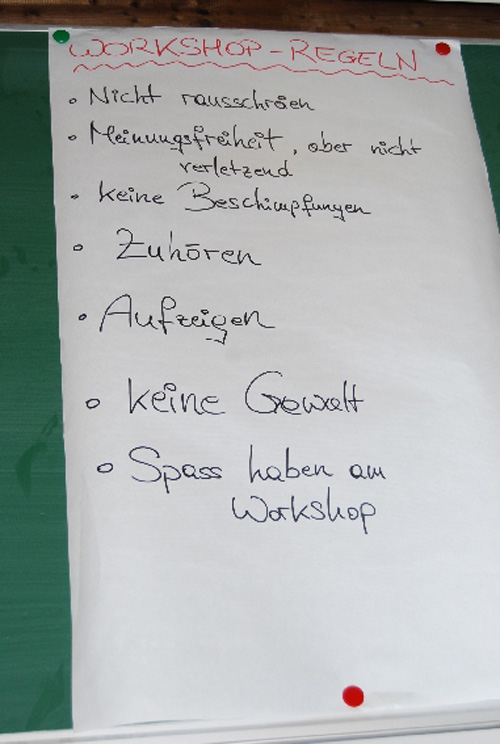 WORKSHOP-REGELN
• Nicht rausschreien
• Meinungsfreiheit, aber nicht
verletzend
• keine Beschimpfungen
• Zuhören
• Aufzeigen
• keine Gewalt
• Spass haben am
Workshop